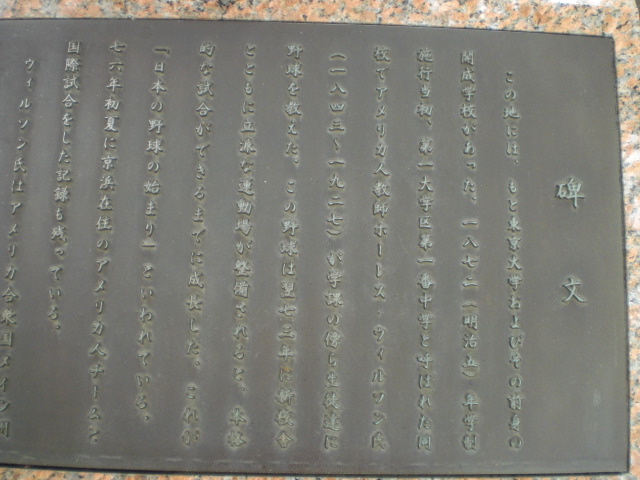 碑文
この地には、もと東京大学およびその前身の
開成学校があった。一八七二(明治五)年学制
施行当初、第一大学区第一番中学と呼ばれた同
校でアメリカ人教師ホーレス・ウィルソン氏
(一八四三~一九二七)が学課の傍ら生徒達に
野球を教えた。この野球は翌七三年に新校舎
とともに立派な運動場が整備されると、本格
的な試合ができるまでに成長した。これが
「日本の野球の始まり」といわれている。
七六年初夏に京浜在住のアメリカ人チームと
国際試合をした記録も残っている。
ウィルソン氏はアメリカ合衆国メイン州